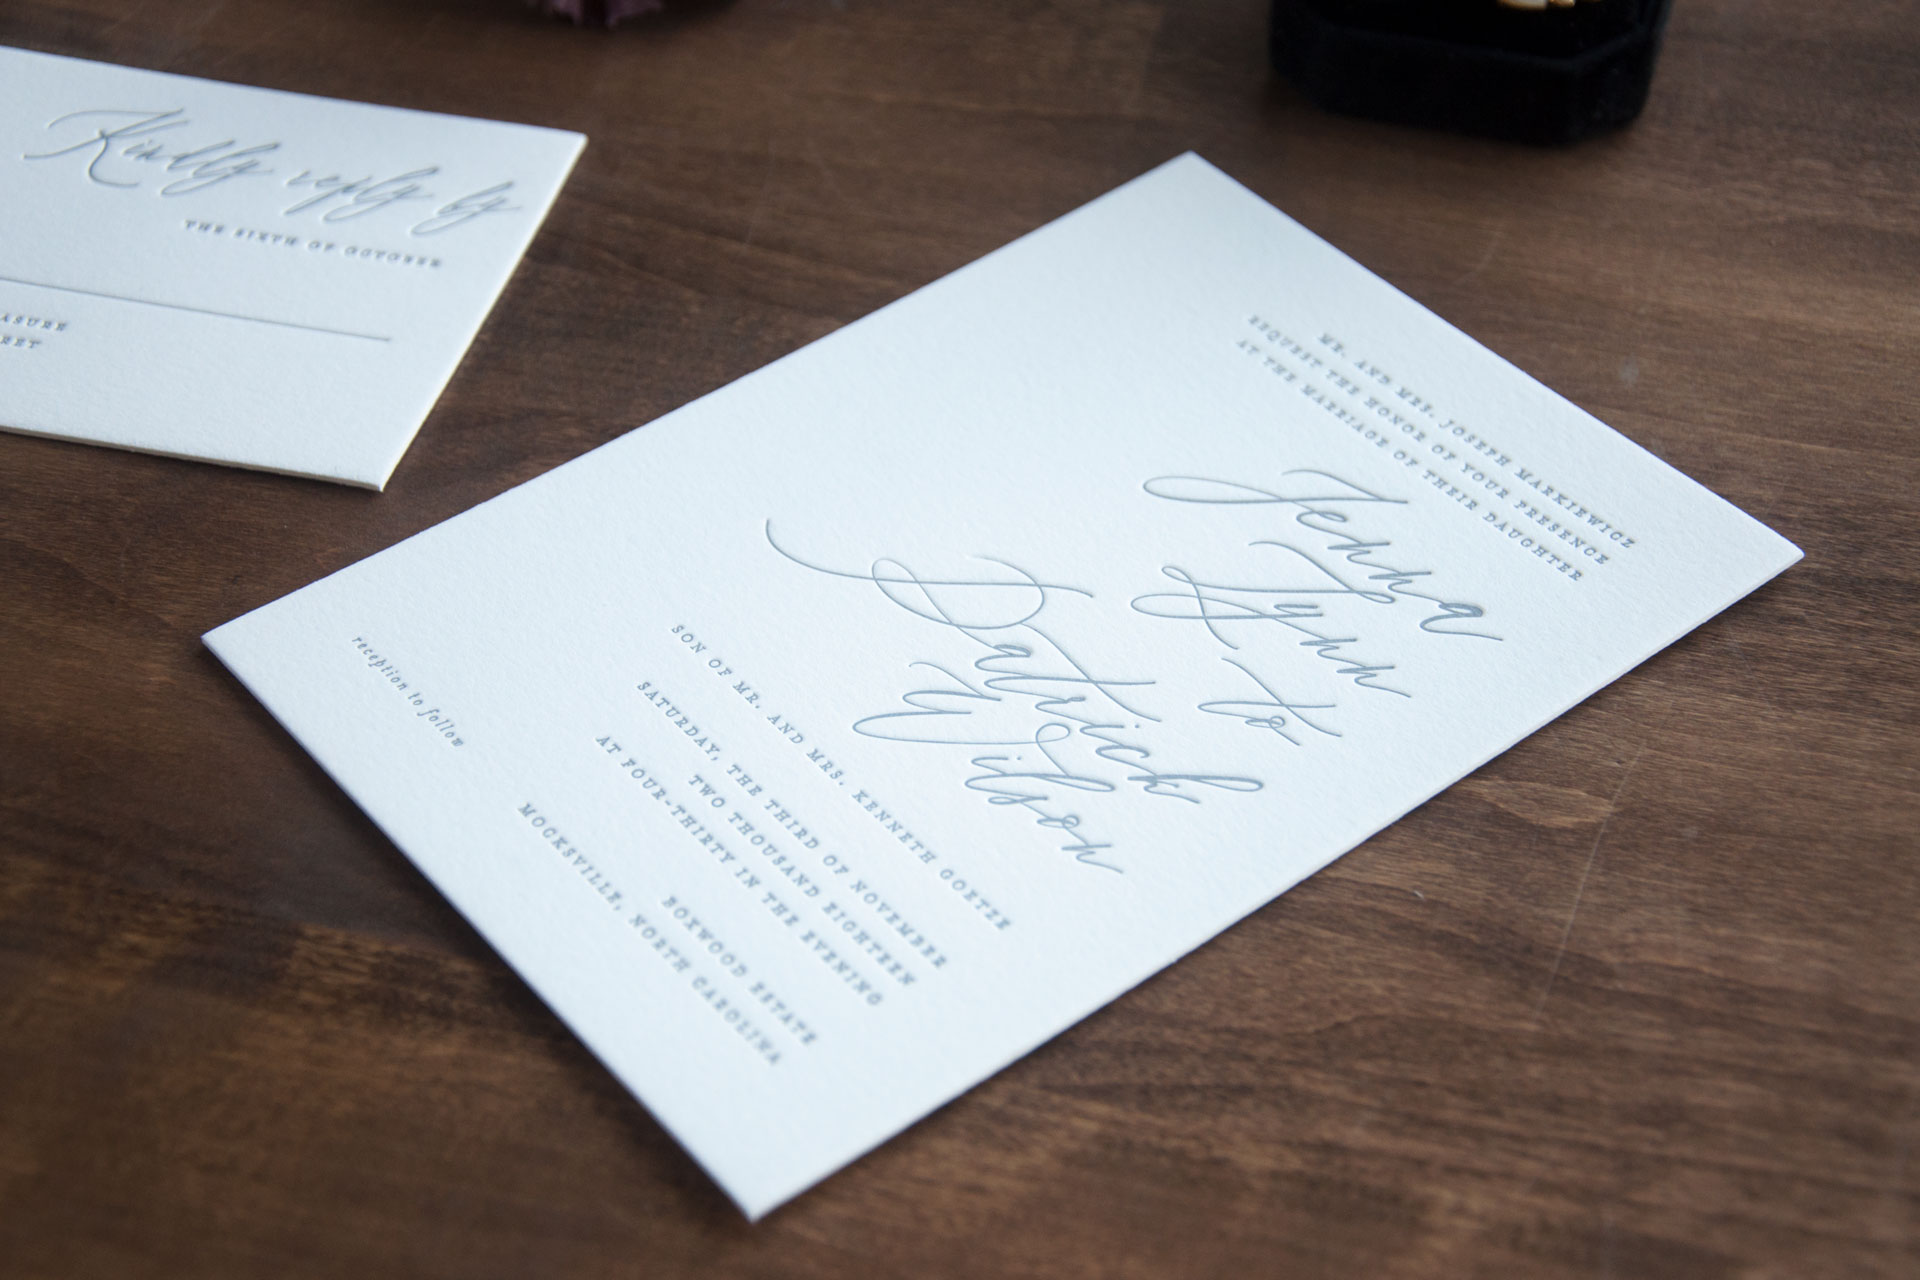 Kindly reply by
THE SIXTH OF OCTOBER
ASURE
RET
MR. AND MRS. JOSEPH MARKIEWICZ
REQUEST THE HONOR OF YOUR PRESENCE
AT THE MARRIAGE OF THEIR DAUGHTER
Jenna
Lynn
to
Patrick
Wilson
SON OF MR. AND MRS. KENNETH GOETZE
SATURDAY, THE THIRD OF NOVEMBER
TWO THOUSAND EIGHTEEN
AT FOUR-THIRTY IN THE EVENING
BOXWOOD ESTATE
MOCKSVILLE, NORTH CAROLINA
reception to follow